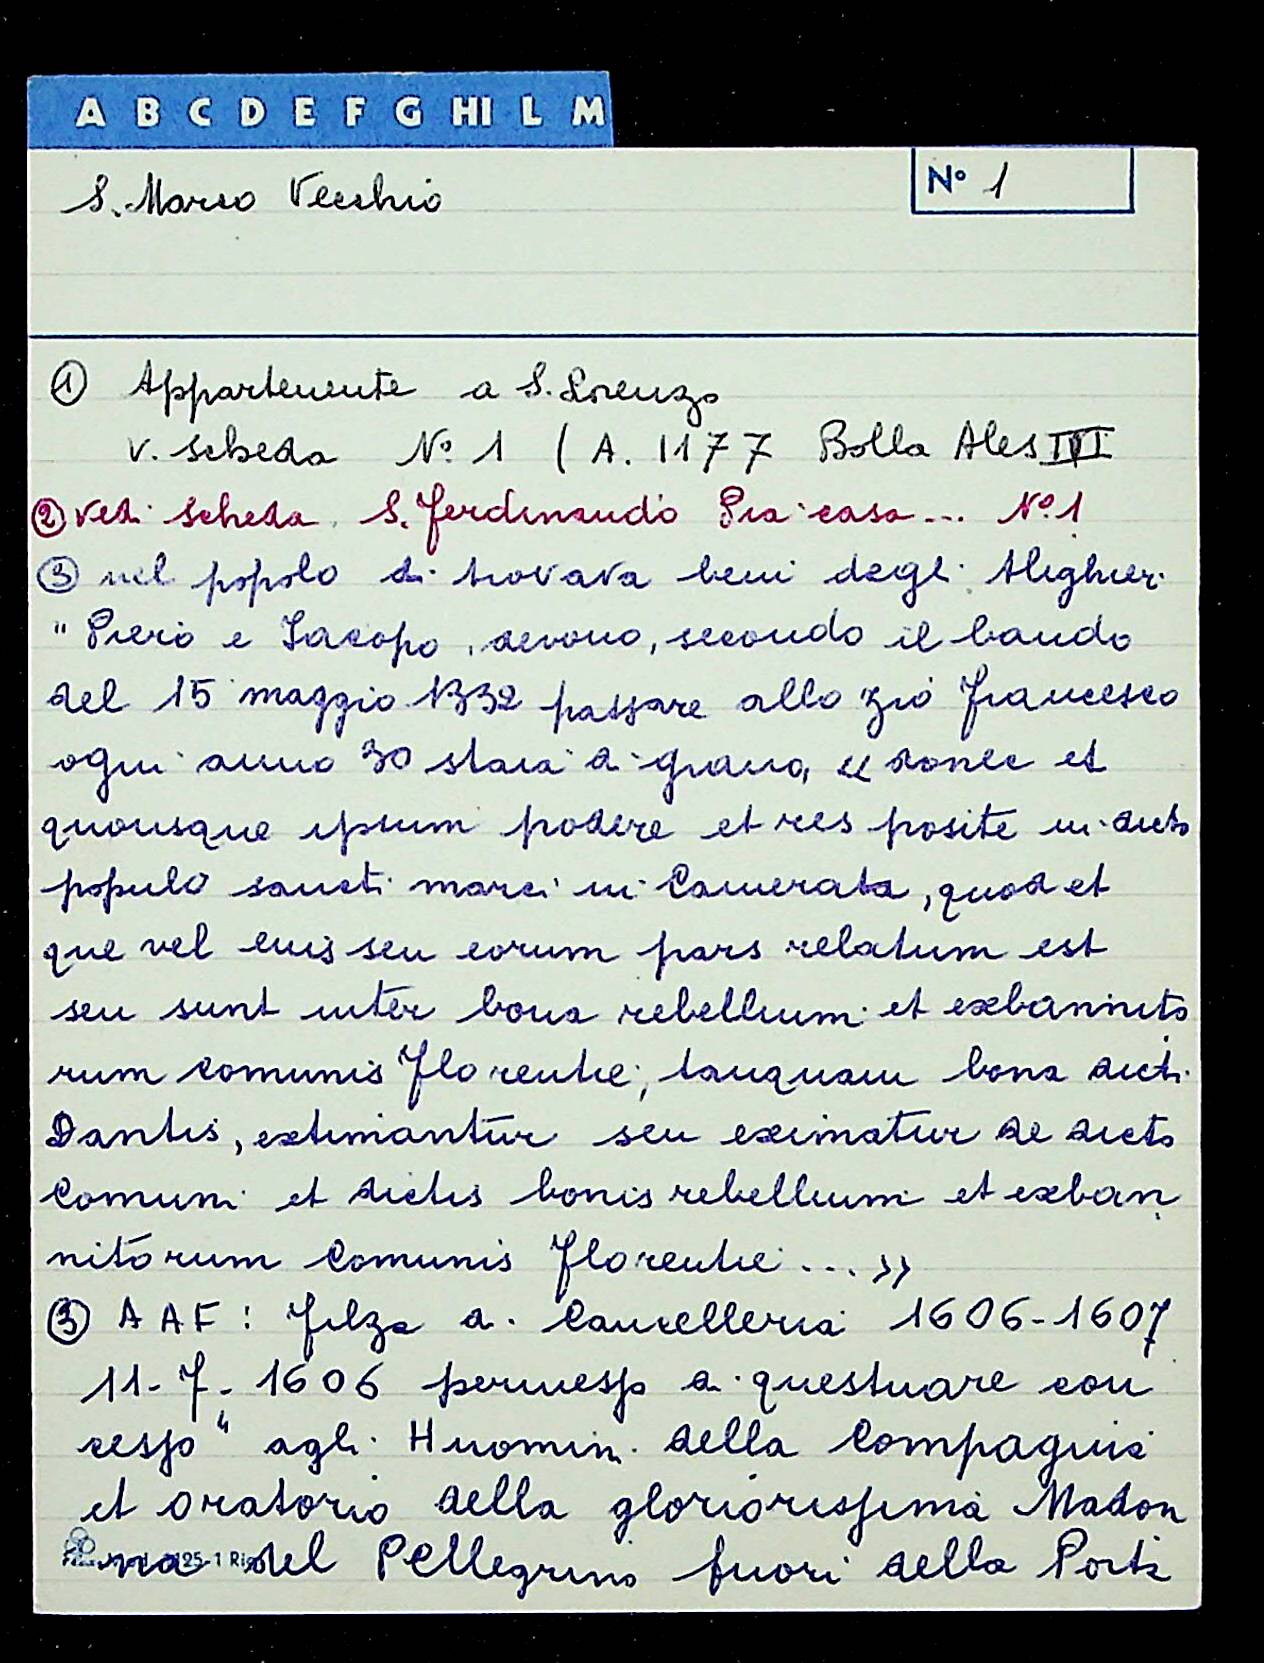 A B C D E F G HI L M
S. Marco Vecchio
N° 1
① Appartenente a S. Lorenzo
v. scheda N° 1 (A. 1177 Bolla Ales III
② vedi scheda S. Ferdinando Pia casa... N° 1
③ nel popolo si trovava beni degli Alighieri
" Piero e Iacopo, devono, secondo il bando
del 15 maggio 1332 passare allo zio Francesco
ogni anno 30 staia di grano, « donec et
quousque ipsum podere et res posite in dicto
populo sancti marci in Camerata, quod et
que vel eius seu eorum pars relatum est
seu sunt inter bona rebellium et exbannito
rum comunis Florentie, tanquam bona dicti
Dantis, extimantur seu eximatur de dicto
Comuni et dictis bonis rebellium et exban
nitorum Comunis Florentie ... »
③ A A F: filza di Cancelleria 1606-1607
11-7-1606 permesso di questuare con
cesso " agli Huomin. della Compagnia
et oratorio della gloriorissima Madon
na del Pellegrino fuori della Porta